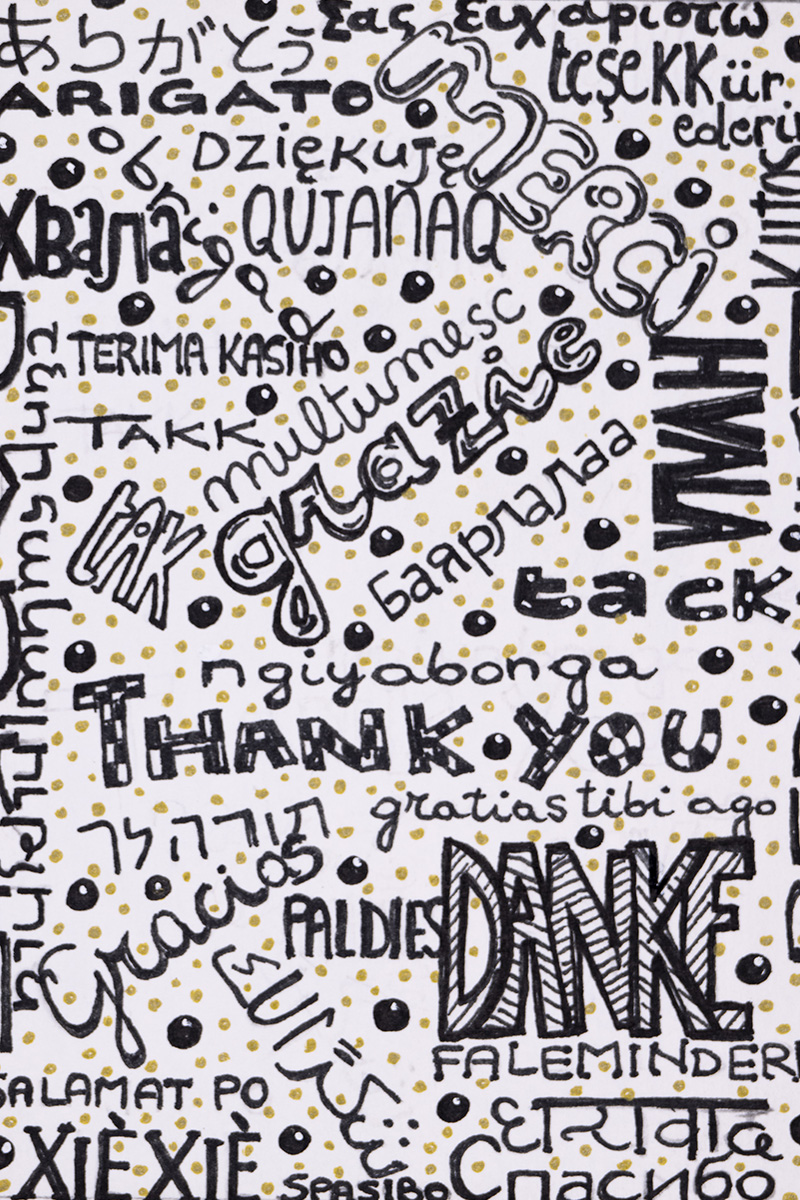 σας ευχαριστώ
ありがとう
ARIGATO
teşekkür
ederi
MERCI
Dziękuję
Хвала
QUJANAQ
Kiitos
TERIMA KASIHO
multumesc
TAKK
grazie
HVALA
tak
баярлалаа
tack
ngiyabonga
THANK YOU
gratias tibi ago
תודה לך
Gracias
PALDIES
DANKE
FALEMINDERI
SALAMAT PO
XIÈXIÈ
SPASIBO
Спасибо